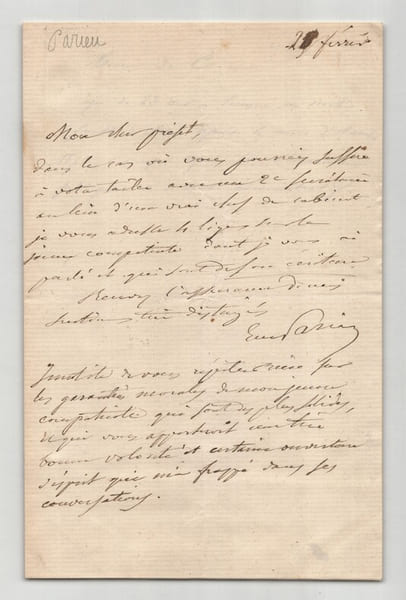 Parieu
25 février
Mon cher préfet,
Dans le cas où vous pourriez suffire
à votre tâche avec un 2e secrétaire
au lieu d'un vrai chef de cabinet
je vous adresse 4 lignes sur le
jeune compatriote dont je vous ai
parlé et qui sont de son écriture
Recevez l'assurance de mes
sentiments très distingués
E. de Parieu
Inutile de vous répéter ici sur
les garanties morales de mon jeune
compatriote qui sont des plus solides,
et qui vous apporterait une très
bonne volonté et certaine ouverture
d'esprit qui m'a frappé dans ses
conversations.